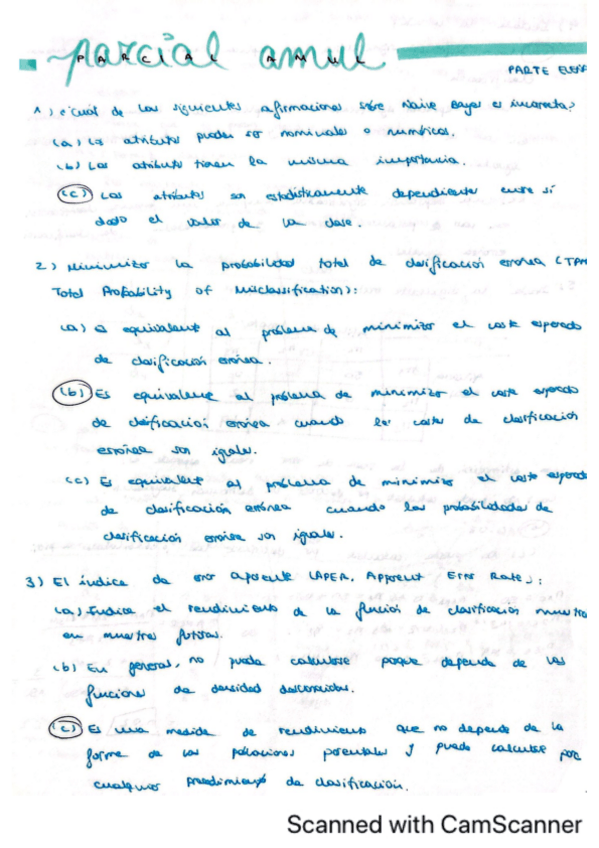 parcial amul
PARCIAL AMUL
PARTE
1) ¿cuál de las siguientes afirmaciones sobre Naive Bayes es incorrecta?
(a) Los atributos pueden ser nominales o numéricos.
(b) Los atributos tienen la misma importancia.
(c) Los atributos son estadísticamente dependientes entre sí
dado el valor de la clase.
2) Minimizar la probabilidad total de clasificación errónea (TPM
Total Probability of Misclassification):
(a) Es equivalente al problema de minimizar el coste esperado
de clasificación errónea.
(b) Es equivalente al problema de minimizar el coste esperado
de clasificación errónea cuando los costes de clasificación
errónea son iguales.
(c) Es equivalente al problema de minimizar el coste esperado
de clasificación errónea cuando las probabilidades de
clasificación errónea son iguales.
3) El índice de error aparente (APER, Apparent Error Rate):
(a) Indica el rendimiento de la función de clasificación muestra
en muestras futuras.
(b) En general, no puede calcularse porque depende de las
funciones de densidad desconocidas.
(c) Es una medida de rendimiento que no depende de la
forma de las poblaciones parentales y puede calcularse por
cualquier procedimiento de clasificación.
Scanned with CamScanner